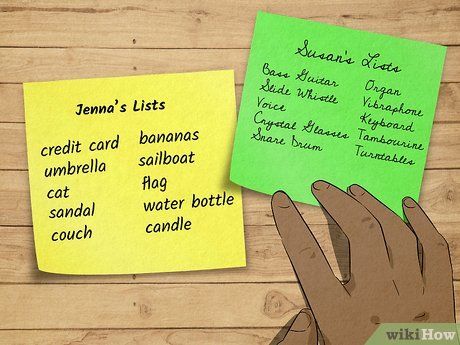 Jenna's Lists
credit card
umbrella
cat
sandal
couch
bananas
sailboat
flag
water bottle
candle
Susan's Lists
Bass Guitar
Slide Whistle
Voice
Crystal Glasses
Snare Drum
Organ
Vibraphone
Keyboard
Tambourine
Turntables
wikiHow